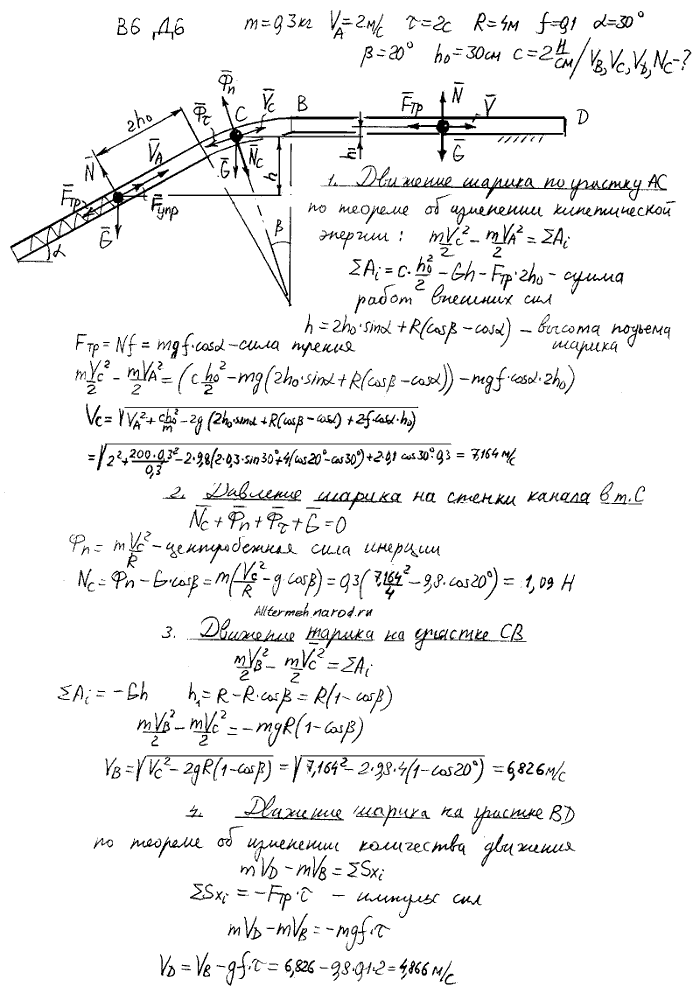 В6, Д6 m=0,3кг V̄A=2м/с τ=2с R=4м f=0,1 α=30°
β=20° h₀=30см c=2 Н/см / VB, VC, VD, NC-?
Φ̄п
V̄C
C
B
Φ̄τ
2h₀
V̄A
N̄
N̄C
Ḡ
h
h₁
F̄тр
N̄
V̄
D
Ḡ
F̄тр
F̄упр
Ḡ
α
β
1. Движение шарика по участку АС
по теореме об изменении кинетической
энергии: mVC²/2 - mVA²/2 = ΣAi
ΣAi = c·h₀²/2 - Gh - Fтр·2h₀ - сумма
работ внешних сил
h = 2h₀·sinα + R(cosβ - cosα) - высота подъема
шарика
Fтр = Nf = mgf·cosα - сила трения
mVC²/2 - mVA²/2 = (ch₀²/2 - mg(2h₀·sinα + R(cosβ - cosα)) - mgf·cosα·2h₀)
VC = √(VA² + ch₀²/m - 2g(2h₀·sinα + R(cosβ - cosα) + 2f·cosα·h₀)
= √(2² + 200·0,3²/0,3 - 2·9,8(2·0,3·sin30° + 4(cos20° - cos30°) + 2·0,1 cos30°·0,3) = 7,164 м/с
2. Давление шарика на стенки канала в т.С
N̄C + Φ̄п + Φ̄τ + Ḡ = 0
Φп = mVC²/R - центробежная сила инерции
NC = Φп - G·cosβ = m(VC²/R - g·cosβ) = 0,3(7,164²/4 - 9,8·cos20°) = 1,09 Н
Alltermeh.narod.ru
3. Движение шарика на участке СВ
mVB²/2 - mVC²/2 = ΣAi
ΣAi = -Gh h₁ = R - R·cosβ = R(1 - cosβ)
mVB²/2 - mVC²/2 = -mgR(1 - cosβ)
VB = √(VC² - 2gR(1 - cosβ)) = √(7,164² - 2·9,8·4(1 - cos20°)) = 6,826 м/с
4. Движение шарика на участке BD
по теореме об изменении количества движения
mVD - mVB = ΣSxi
ΣSxi = -Fтр·τ - импульс сил
mVD - mVB = -mgf·τ
VD = VB - gf·τ = 6,826 - 9,8·0,1·2 = 4,866 м/с